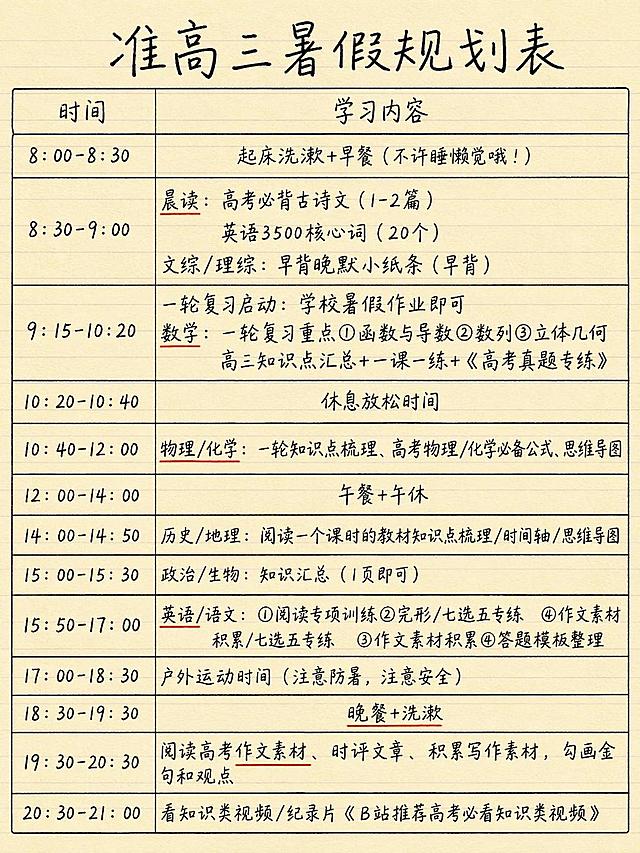 准高三暑假规划表
时间 学习内容
8:00-8:30 起床洗漱+早餐(不许睡懒觉哦!)
8:30-9:00 晨读：高考必背古诗文(1-2篇)
英语3500核心词(20个)
文综/理综：早背晚默小纸条(早背)
9:15-10:20 一轮复习启动：学校暑假作业即可
数学：一轮复习重点①函数与导数②数列③立体几何
高三知识点汇总+一课一练+《高考真题专练》
10:20-10:40 休息放松时间
10:40-12:00 物理/化学：一轮知识点梳理、高考物理/化学必备公式、思维导图
12:00-14:00 午餐+午休
14:00-14:50 历史/地理：阅读一个课时的教材知识点梳理/时间轴/思维导图
15:00-15:30 政治/生物：知识汇总(1页即可)
15:50-17:00 英语/语文：①阅读专项训练②完形/七选五专练 ④作文素材
积累/七选五专练 ③作文素材积累④答题模板整理
17:00-18:30 户外运动时间(注意防暑，注意安全)
18:30-19:30 晚餐+洗漱
19:30-20:30 阅读高考作文素材、时评文章、积累写作素材，勾画金
句和观点
20:30-21:00 看知识类视频/纪录片《B站推荐高考必看知识类视频》